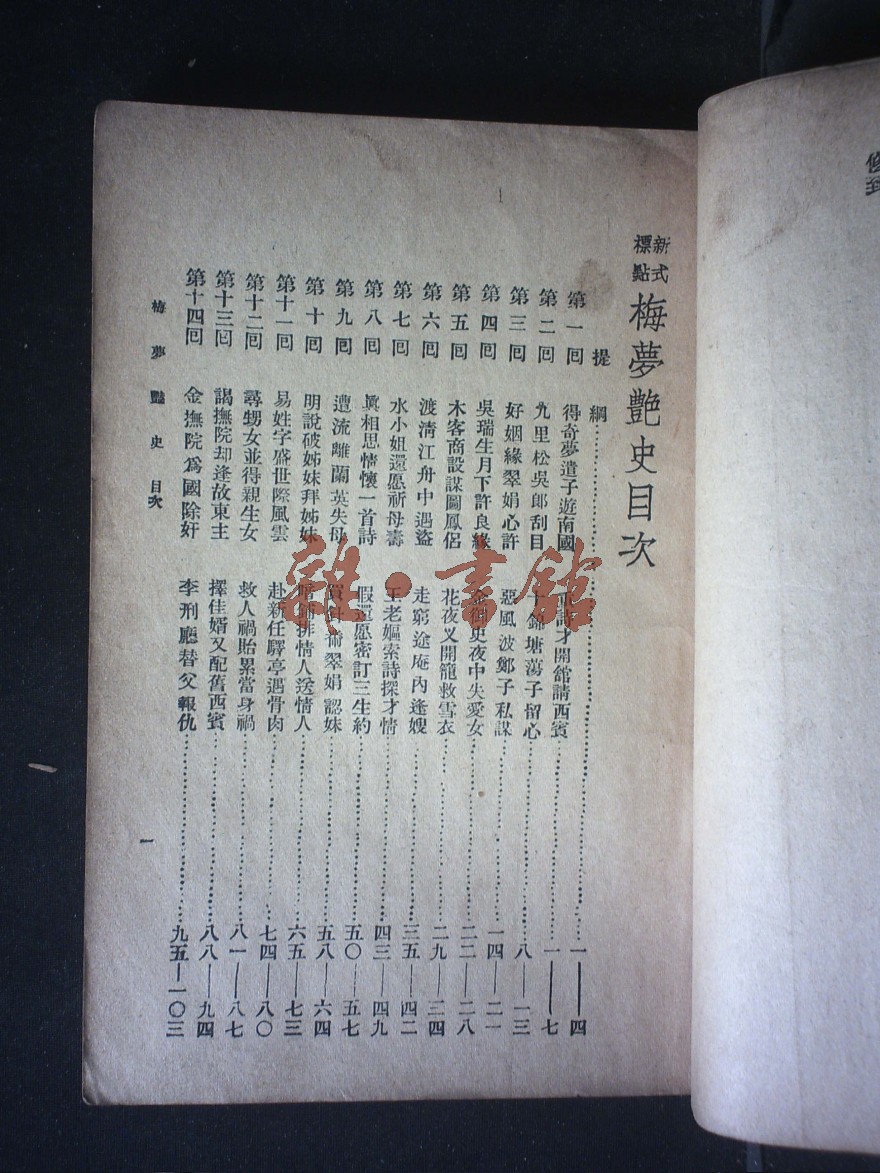 新式標點 梅夢艷史目次
提綱 一—四
第一回 得奇夢遣子遊南國 詩才開館請西賓 一—七
第二回 九里松吳郎刮目 錦塘蕩子留心 八—一三
第三回 好姻緣翠娟心許 惡風波鄭子私謀 一四—二一
第四回 吳瑞生月下許良緣 御史夜中失愛女 二二—二八
第五回 木客商設謀圖鳳侶 花夜叉開籠救雪衣 二九—三四
第六回 渡淸江舟中遇盜 走窮途庵內逢嫂 三五—四二
第七回 水小姐還愿祈母壽 王老嫗索詩探才情 四三—四九
第八回 眞相思情懷一首詩 假還愿密訂三生約 五〇—五七
第九回 遭流離蘭英失母 術翠娟認妹 五八—六四
第十回 明說破姊妹拜姊妹 暗鋪排情人送情人 六五—七三
第十一回 易姓字盛世際風雲 赴新任驛亭遇骨肉 七四—八〇
第十二回 尋甥女並得親生女 救人禍貽累當身禍 八一—八七
第十三回 謁撫院却逢故東主 擇佳婿又配舊西賓 八八—九四
第十四回 金撫院爲國除奸 李刑廳替父報仇 九五—一〇三
梅夢豔史 目次
一
雜·書館